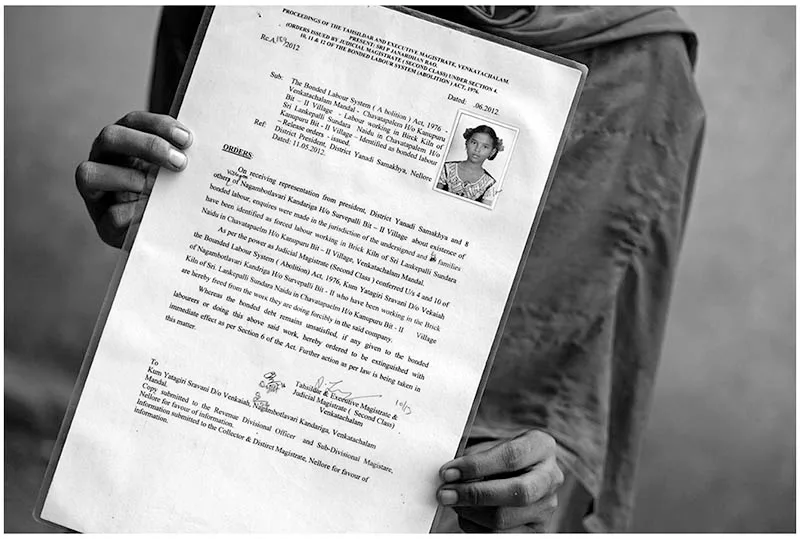 PROCEEDINGS OF THE TAHSILDAR AND EXECUTIVE MAGISTRATE, VENKATACHALAM.
(ORDERS ISSUED BY JUDICIAL MAGISTRATE (SECOND CLASS) UNDER SECTION 4,
10, 11 & 12 OF THE BONDED LABOUR SYSTEM (ABOLITION) ACT, 1976.
PRESENT: SRI P JANARDHAN RAO.
Rc.A/ /2012
Dated: .06.2012.
Sub: The Bonded Labour System ( A bolition ) Act, 1976 -
Venkatachalam Mandal - Chavatapalem H/o Kanupuru
Bit – II Village - Labour working in Brick Kiln of
Sri Lankepalli Sundara Naidu in Chavatapalem H/o
Kanupuru Bit - II Village – Identified as bonded labour
– Release orders - issued.
Ref: District President, District Yanadi Samakhya, Nellore
Dated: 11.05.2012.
ORDERS:
On receiving representation from president, District Yanadi Samakhya and 8
others of Nagambotlavari Kandariga H/o Survepalli Bit – II Village about existence of
bonded labour, enquires were made in the jurisdiction of the undersigned and families
have been identified as forced labour working in Brick Kiln of Sri Lankepalli Sundara
Naidu in Chavatapaelm H/o Kanupuru Bit – II Village, Venkatachalam Mandal.
As per the power as Judicial Magistrate (Second Class ) conferred U/s 4 and 10 of
the Bounded Labour System ( Abolition) Act, 1976, Kum Yatagiri Sravani D/o Vekaiah
of Nagambotlavari Kandriga H/o Survepalli Bit - II who have been working in the Brick
Kiln of Sri. Lankepalli Sundara Naidu in Chavatapaelm H/o Kanupuru Bit - II Village
are hereby freed from the work they are doing forcibly in the said company.
Whereas the bonded debt remains unsatisfied, if any given to the bonded
labourers or doing this above said work, hereby ordered to be extinguished with
immediate effect as per Section 6 of the Act. Further action as per law is being taken in
this matter.
Tahsildar & Executive Magistrate &
Judicial Magistrate ( Second Class)
Venkatachalam
To
Kum Yatagiri Sravani D/o Venkaiah, Nagambotlavari Kandariga, Venkatachalam
Mandal.
Copy submitted to the Revenue Divisional Officer and Sub-Divisional Magistare,
Nellore for favour of information.
Information submitted to the Collector & Distirct Magistrate, Nellore for favour of
information.